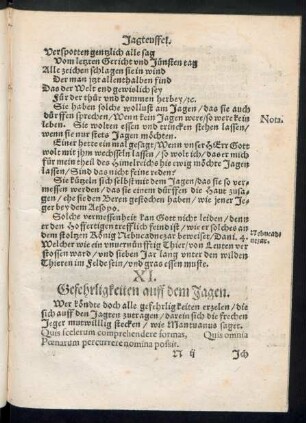 Jagteuffel.
Verspotten gentzlich alle sag
Vom letzten Gericht vnd Jüngsten tag
Alle zeichen schlagen sie in wind
Der man jtzt allenthalben find
Das der Welt end gewiolich sey
Für der thür vnd kommen herbey/ꝛc.
Sie haben solche wollust am Jagen/das sie auch
dürffen sprechen/Wenn kein Jagen were/so were kein
leben. Sie wolten essen vnd trincken stehen lassen/
wenn sie nur stets Jagen möchten.
Nota.
Einer hette ein mal gesagt/Wenn vnser HErr Gott
wolt mit jhm wechsseln lassen/so wolt ich/das er mich
für mein theil des Himelreichs hie ewig möchte Jagen
lassen/Sind das nicht feine reden?
Sie küzeln sich selbst mit dem Jagen/das sie so ver-
messen werden/das sie einem dörffen die Haut zusa-
gen/ehe sie den Beren gestochen haben/wie jener Je-
ger bey dem Aesopo.
Solche vermessenheit kan Gott nicht leiden/denn
er den Hoffertigen trefflich feindt ist/wie er solches an
dem stoltzen König Nebucadnezar beweiset/Dani. 4.
Welcher wie ein vnuernünfftig Thier/von Leuten ver
stossen ward/vnd sieben Jar lang vnter den wilden
Thieren im Felde sein/vnd gras essen muste.
Nebucadnezar.
XI.
Gefehrligkeiten auff dem Jagen.
Wer köndte doch alle gefehrligkeiten erzelen/die
sich auff den Jagten zutragen/darein sich die frechen
Jeger mutwilllig stecken/wie Mantuanus saget.
Quis scelerum comprehendere formas, Quis omnia
Pœnarum percurrere nomina possit.
N ij
Ich